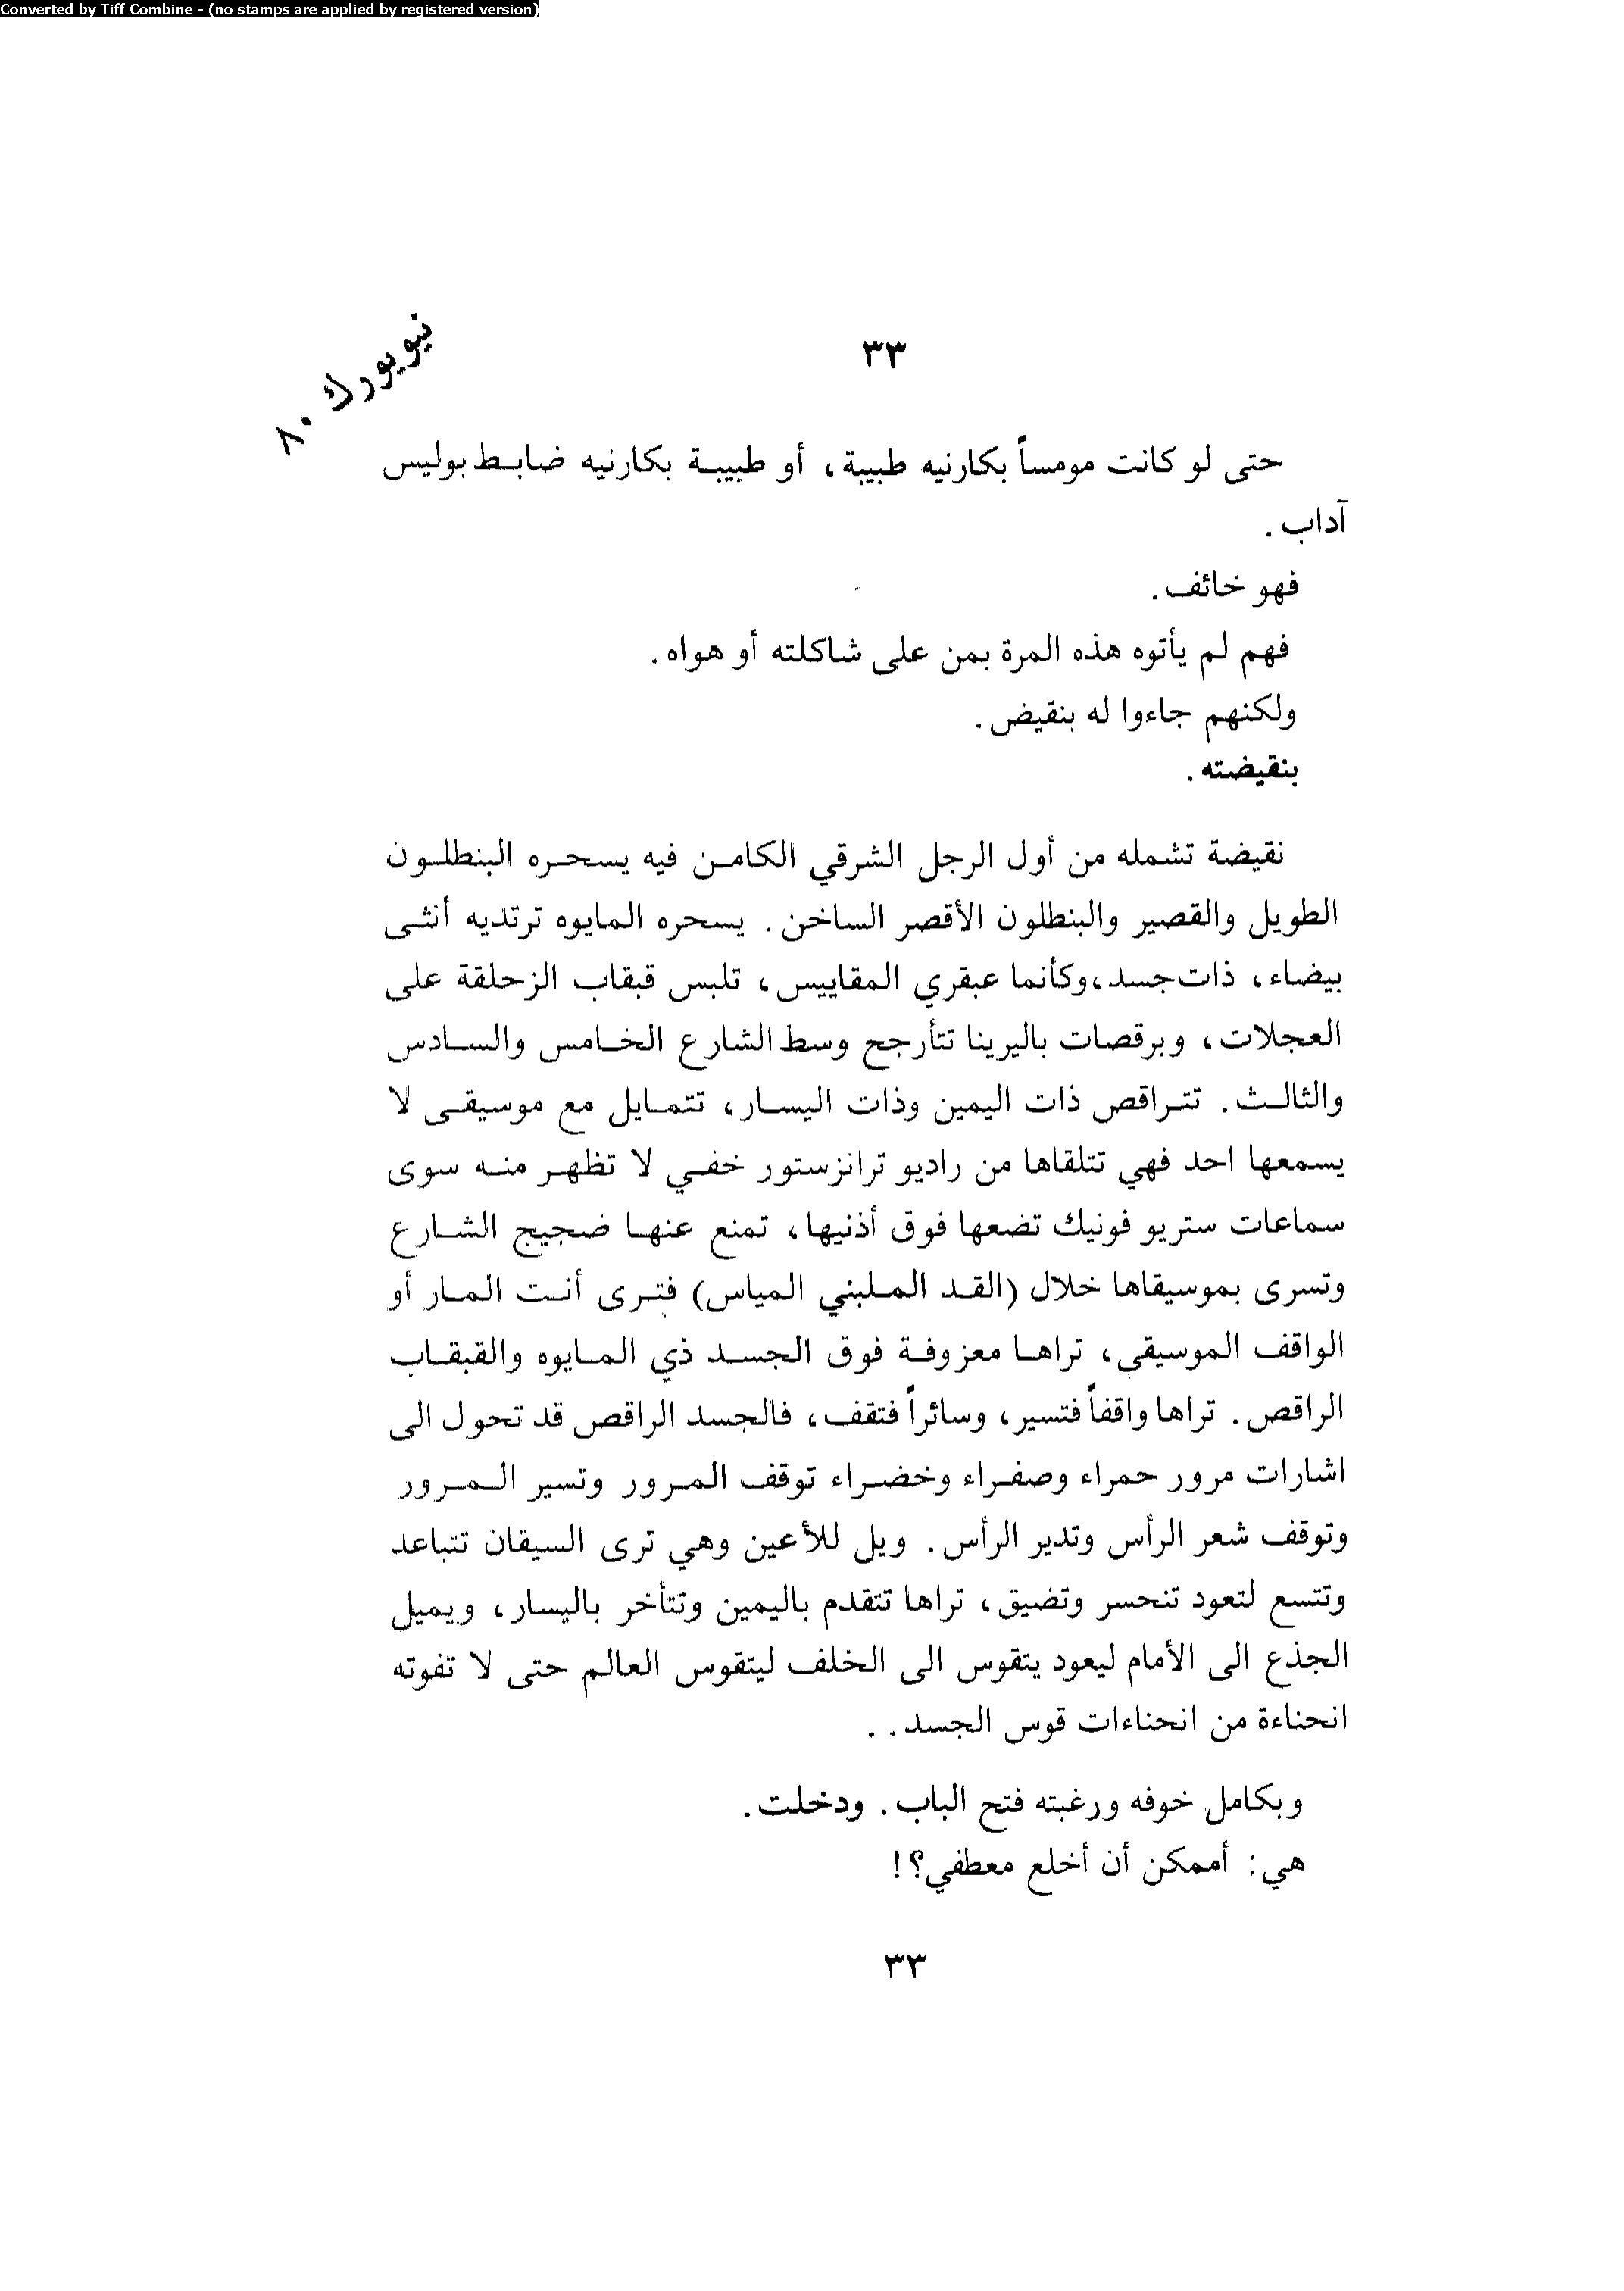 Converted by Tiff Combine - (no stamps are applied by registered version)
نيويورك ٨٠
٣٣
حتى لو كانت مومساً بكارنيه طبيبة، أو طبيبة بكارنيه ضابط بوليس
آداب .
فهو خائف .
فهم لم يأتوه هذه المرة بمن على شاكلته أو هواه .
ولكنهم جاءوا له بنقيض .
بنقيضته .
نقيضة تشمله من أول الرجل الشرقي الكامن فيه يسحره البنطلون
الطويل والقصير والبنطلون الأقصر الساخن . يسحره المايوه ترتديه أنثى
بيضاء، ذات جسد،وكأنما عبقري المقاييس، تلبس قبقاب الزحلقة على
العجلات، وبرقصات باليرينا تتأرجح وسط الشارع الخامس والسادس
والثالث . تتراقص ذات اليمين وذات اليسار، تتمايل مع موسيقى لا
يسمعها احد فهي تتلقاها من راديو ترانزستور خفي لا تظهر منه سوى
سماعات ستريو فونيك تضعها فوق أذنيها، تمنع عنها ضجيج الشارع
وتسرى بموسيقاها خلال (القد الملبني المياس) فترى أنت المار أو
الواقف الموسيقى، تراها معزوفة فوق الجسد ذي المايوه والقبقاب
الراقص . تراها واقفاً فتسير، وسائراً فتقف، فالجسد الراقص قد تحول الى
اشارات مرور حمراء وصفراء وخضراء توقف المرور وتسير المرور
وتوقف شعر الرأس وتدير الرأس . ويل للأعين وهي ترى السيقان تتباعد
وتتسع لتعود تنحسر وتضيق، تراها تتقدم باليمين وتتأخر باليسار، ويميل
الجذع الى الأمام ليعود يتقوس الى الخلف ليتقوس العالم حتى لا تفوته
انحناءة من انحناءات قوس الجسد . .
وبكامل خوفه ورغبته فتح الباب . ودخلت .
هي : أممكن أن أخلع معطفي؟!
٣٣